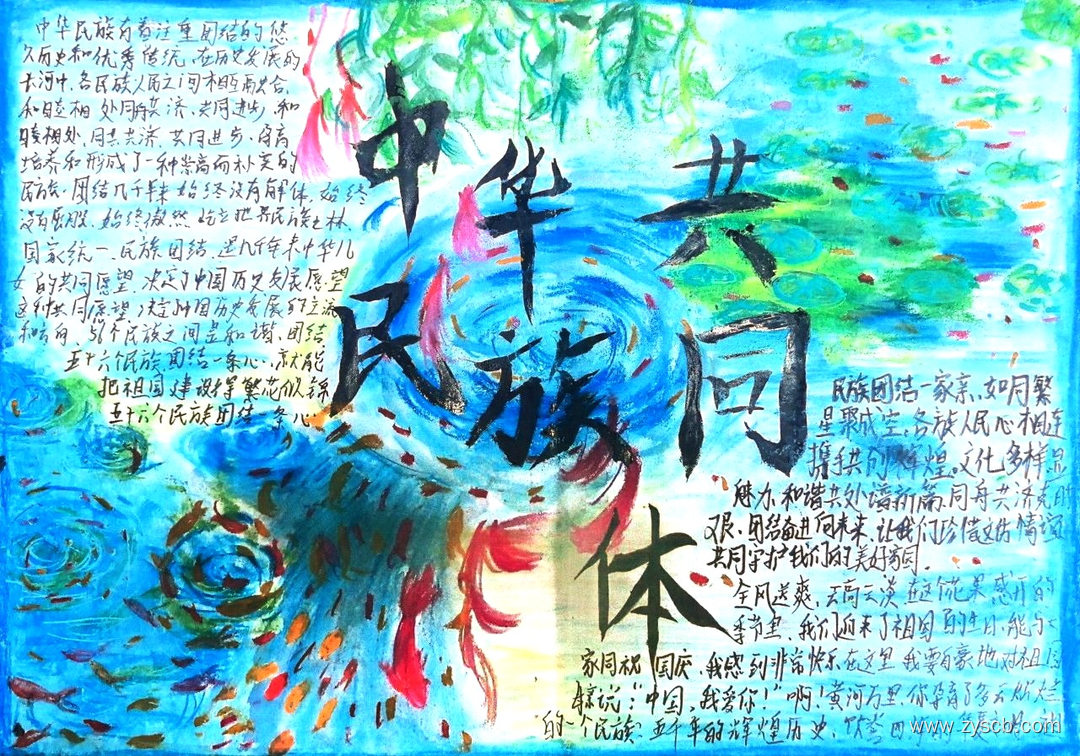 中华民族有着注重团结的悠
久历史和优秀传统,在历史发展的
长河中,各民族人民之间相互融合,
和睦相处同舟共济、共同进步,和
睦相处,同舟共济,共同进步,孕育
培养和形成了一种崇高而朴实的
民族,团结几千年来始终没有解体,始终
没有屈服,始终傲然屹立世界民族之林
国家统一、民族团结,是几千年来中华儿
女的共同愿望,决定了中国历史发展愿望
这种共同愿望,决定中国历史发展的主流
和方向,56个民族之间是和谐、团结
五十六个民族团结一条心,就能
把祖国建设得繁花似锦
五十六个民族团结一条心
中华民族共同体
民族团结一家亲,如月繁
星聚成空。各族人民心相连
携手共创辉煌。文化多样显
魅力,和谐共处谱新篇,同舟共济克时
艰,团结奋进向未来,让我们珍惜这份情谊
共同守护我们的美好家园。
金风送爽,云高云淡,在这个花果盛开的
季节里,我们迎来了祖国的生日,能为大
家同祝国庆,我感到非常快乐在这里,我要自豪地对祖国
母亲说:“中国,我爱你!”啊!黄河万里,你孕育了多
的一个民族:五千年的辉煌历史,
www.zyscb.com